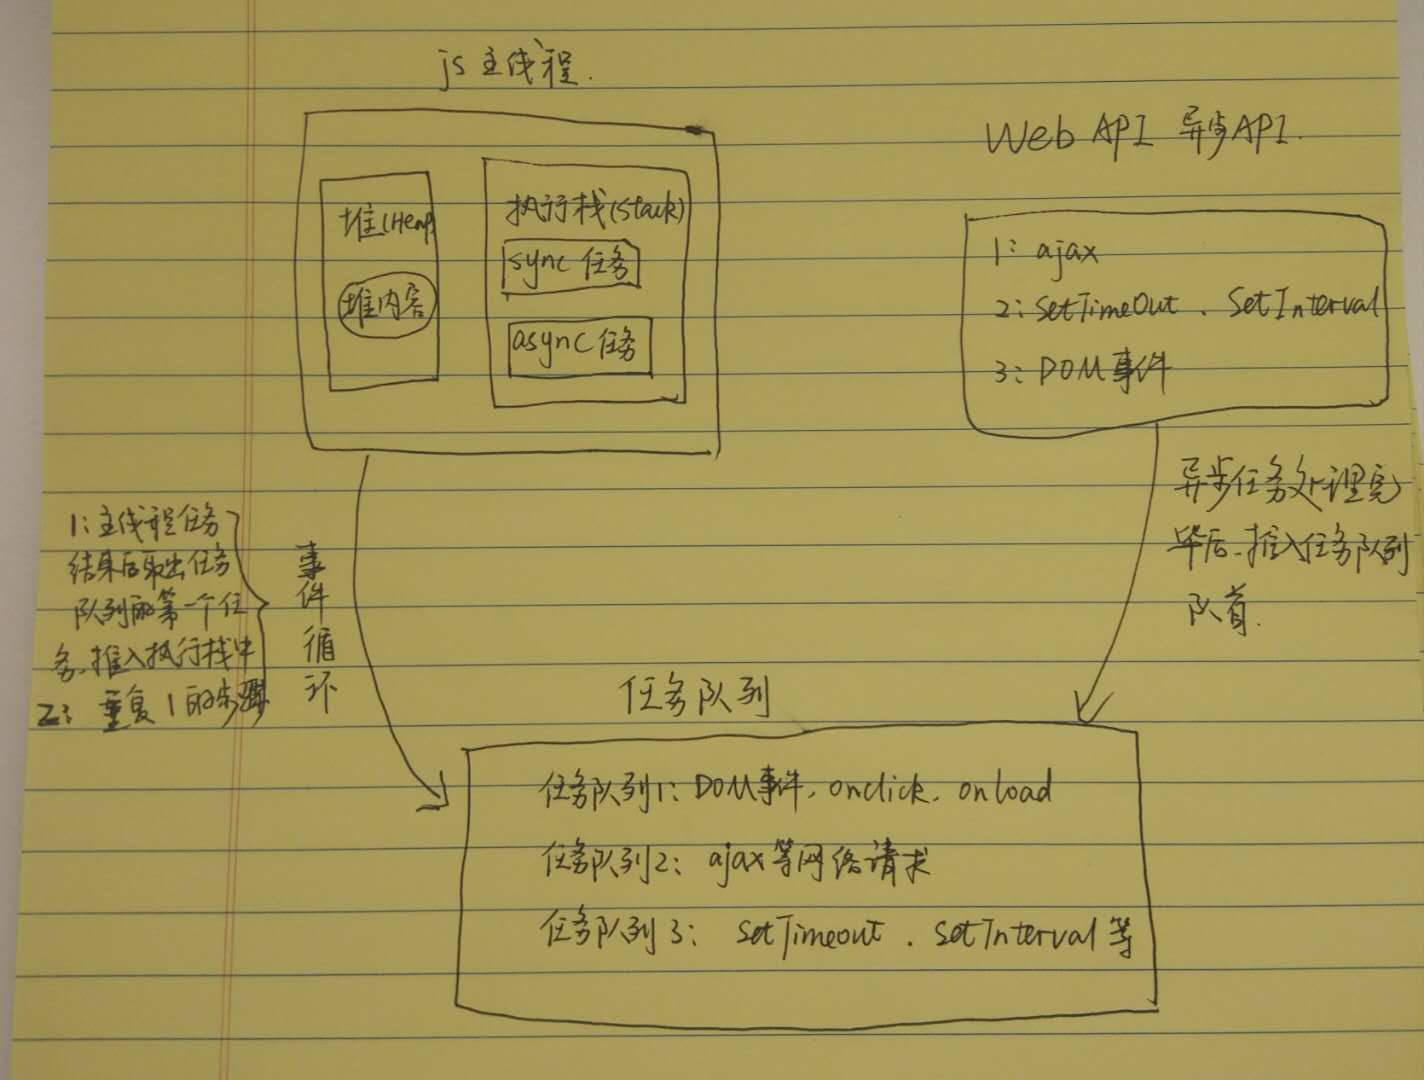 js 主线程.
堆(Heap)
堆内容
执行栈(Stack)
sync 任务
async 任务
Web API 异步API.
1: ajax
2: SetTimeOut . SetInterval
3: DOM事件
异步任务处理完
毕后、推入任务队列
队首.
1: 主线程任务
结束后取出任务
队列的第一个任
务、推入执行栈中
2: 重复1的步骤
事
件
循
环
任务队列
任务队列1: DOM事件, onclick, onload
任务队列2: ajax等网络请求
任务队列3: SetTimeout . SetInterval等